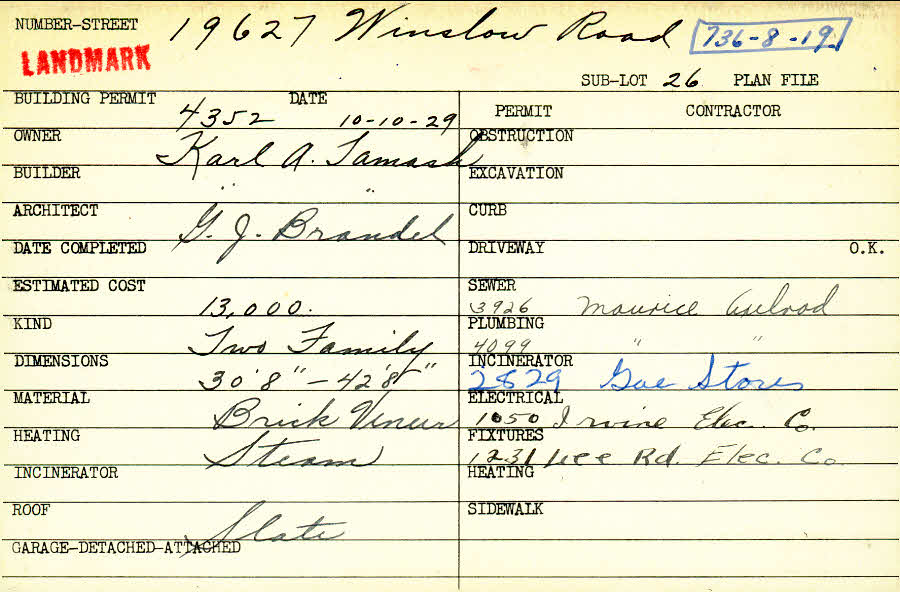 NUMBER-STREET 19627 Winslow Road 736-8-19
LANDMARK
SUB-LOT 26 PLAN FILE
BUILDING PERMIT 4352 DATE 10-10-29
PERMIT CONTRACTOR
OWNER Karl A. Tamash
OBSTRUCTION
BUILDER " "
EXCAVATION
ARCHITECT G. J. Brandel
CURB
DATE COMPLETED
DRIVEWAY O.K.
ESTIMATED COST 13,000.
SEWER 3926 Maurice
KIND Two Family
PLUMBING 4099 " "
DIMENSIONS 30'8" - 42'8"
INCINERATOR 2829 Stores
MATERIAL Brick Veneer
ELECTRICAL 1050 Irvine Elec. Co.
HEATING Steam
FIXTURES 1231 Lee Rd. Elec. Co.
INCINERATOR
HEATING
ROOF Slate
SIDEWALK
GARAGE-DETACHED-ATTACHED